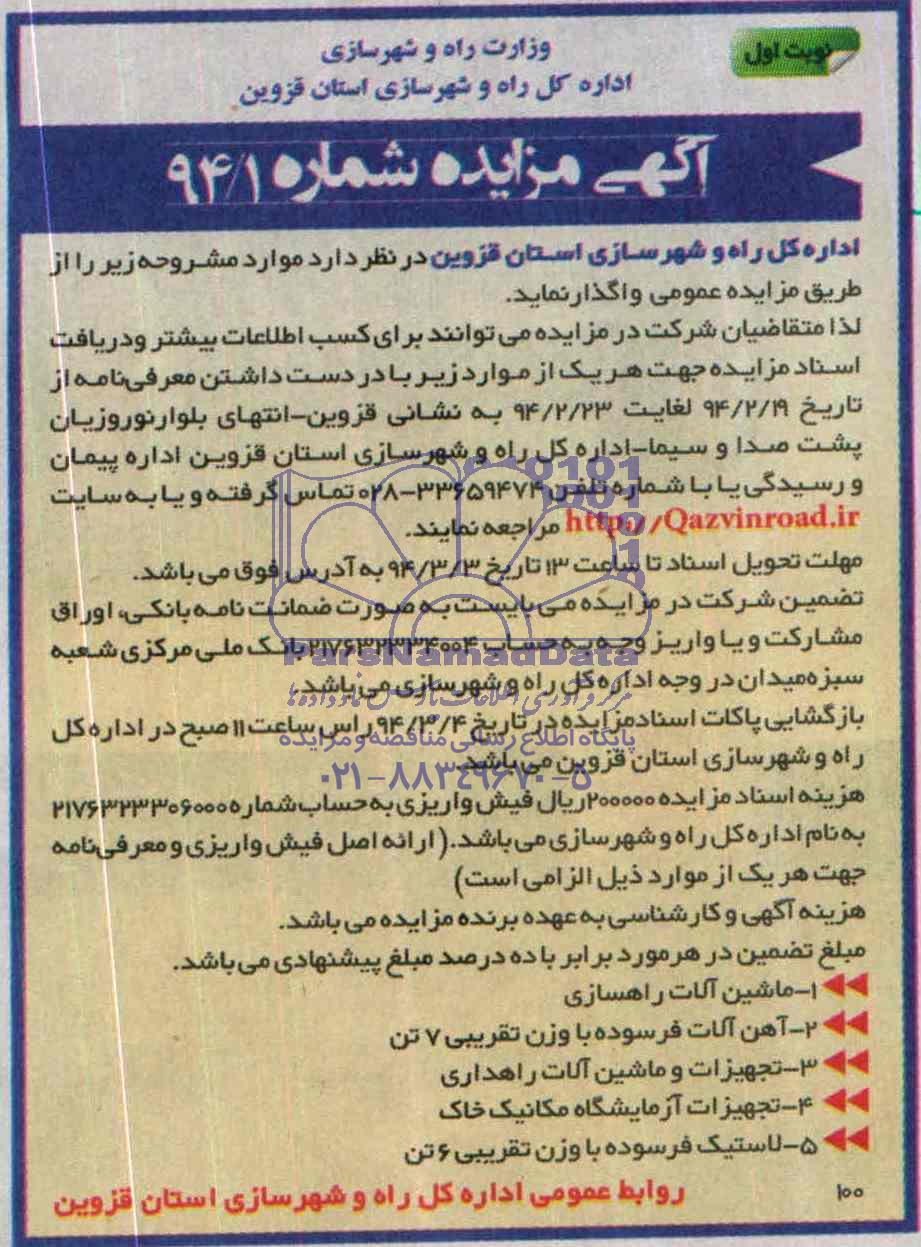 نوبت اول
وزارت راه و شهرسازی
اداره کل راه و شهرسازی استان قزوین
آگهی مزایده شماره ۹۴/۱
اداره کل راه و شهرسازی استان قزوین در نظر دارد موارد مشروحه زیر را از
طریق مزایده عمومی واگذار نماید.
لذا متقاضیان شرکت در مزایده می توانند برای کسب اطلاعات بیشتر ودریافت
اسناد مزایده جهت هر یک از موارد زیر با در دست داشتن معرفی‌نامه از
تاریخ ۹۴/۲/۱۹ لغایت ۹۴/۲/۲۳ به نشانی قزوین-انتهای بلوارنوروزیان
پشت صدا و سیما-اداره کل راه و شهرسازی استان قزوین اداره پیمان
و رسیدگی یا با شماره تلفن ۳۳۶۵۹۴۷۴-۰۲۸ تماس گرفته و یا به سایت
http://Qazvinroad.ir مراجعه نمایند.
مهلت تحویل اسناد تا ساعت ۱۳ تاریخ ۹۴/۳/۳ به آدرس فوق می باشد.
تضمین شرکت در مزایده می بایست به صورت ضمانت نامه بانکی، اوراق
مشارکت و یا واریز وجه به حساب ۲۱۷۶۳۲۳۳۴۰۰۴ بانک ملی مرکزی شعبه
سبزه میدان در وجه اداره کل راه و شهرسازی می باشد.
بازگشایی پاکات اسناد مزایده در تاریخ ۹۴/۳/۴ راس ساعت ۱۱ صبح در اداره کل
راه و شهرسازی استان قزوین می باشد.
هزینه اسناد مزایده ۲۰۰۰۰۰ ریال فیش واریزی به حساب شماره ۲۱۷۶۳۲۳۳۰۶۰۰۰
به نام اداره کل راه و شهرسازی می باشد. (ارائه اصل فیش واریزی و معرفی‌نامه
جهت هر یک از موارد ذیل الزامی است)
هزینه آگهی و کارشناسی به عهده برنده مزایده می باشد.
مبلغ تضمین در هر مورد برابر با ده درصد مبلغ پیشنهادی می باشد.
۱-ماشین آلات راهسازی
۲-آهن آلات فرسوده با وزن تقریبی ۷ تن
۳-تجهیزات و ماشین آلات راهداری
۴-تجهیزات آزمایشگاه مکانیک خاک
۵-لاستیک فرسوده با وزن تقریبی ۶ تن
۱۰۰
روابط عمومی اداره کل راه و شهرسازی استان قزوین
ParsNamadData
پایگاه اطلاع رسانی مناقصه و مزایده
۰۲۱-۸۸۳۴۹۶۷۰-۵